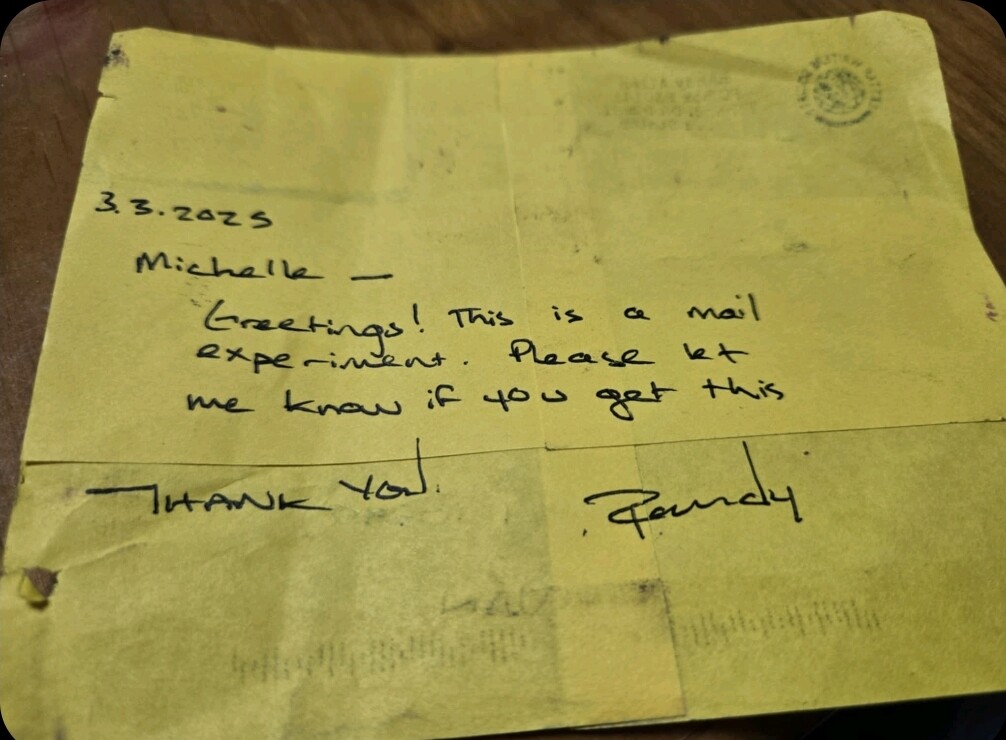 3.3.2025
Michelle —
Greetings! This is a mail
experiment. Please let
me know if you get this
THANK YOU!
Randy